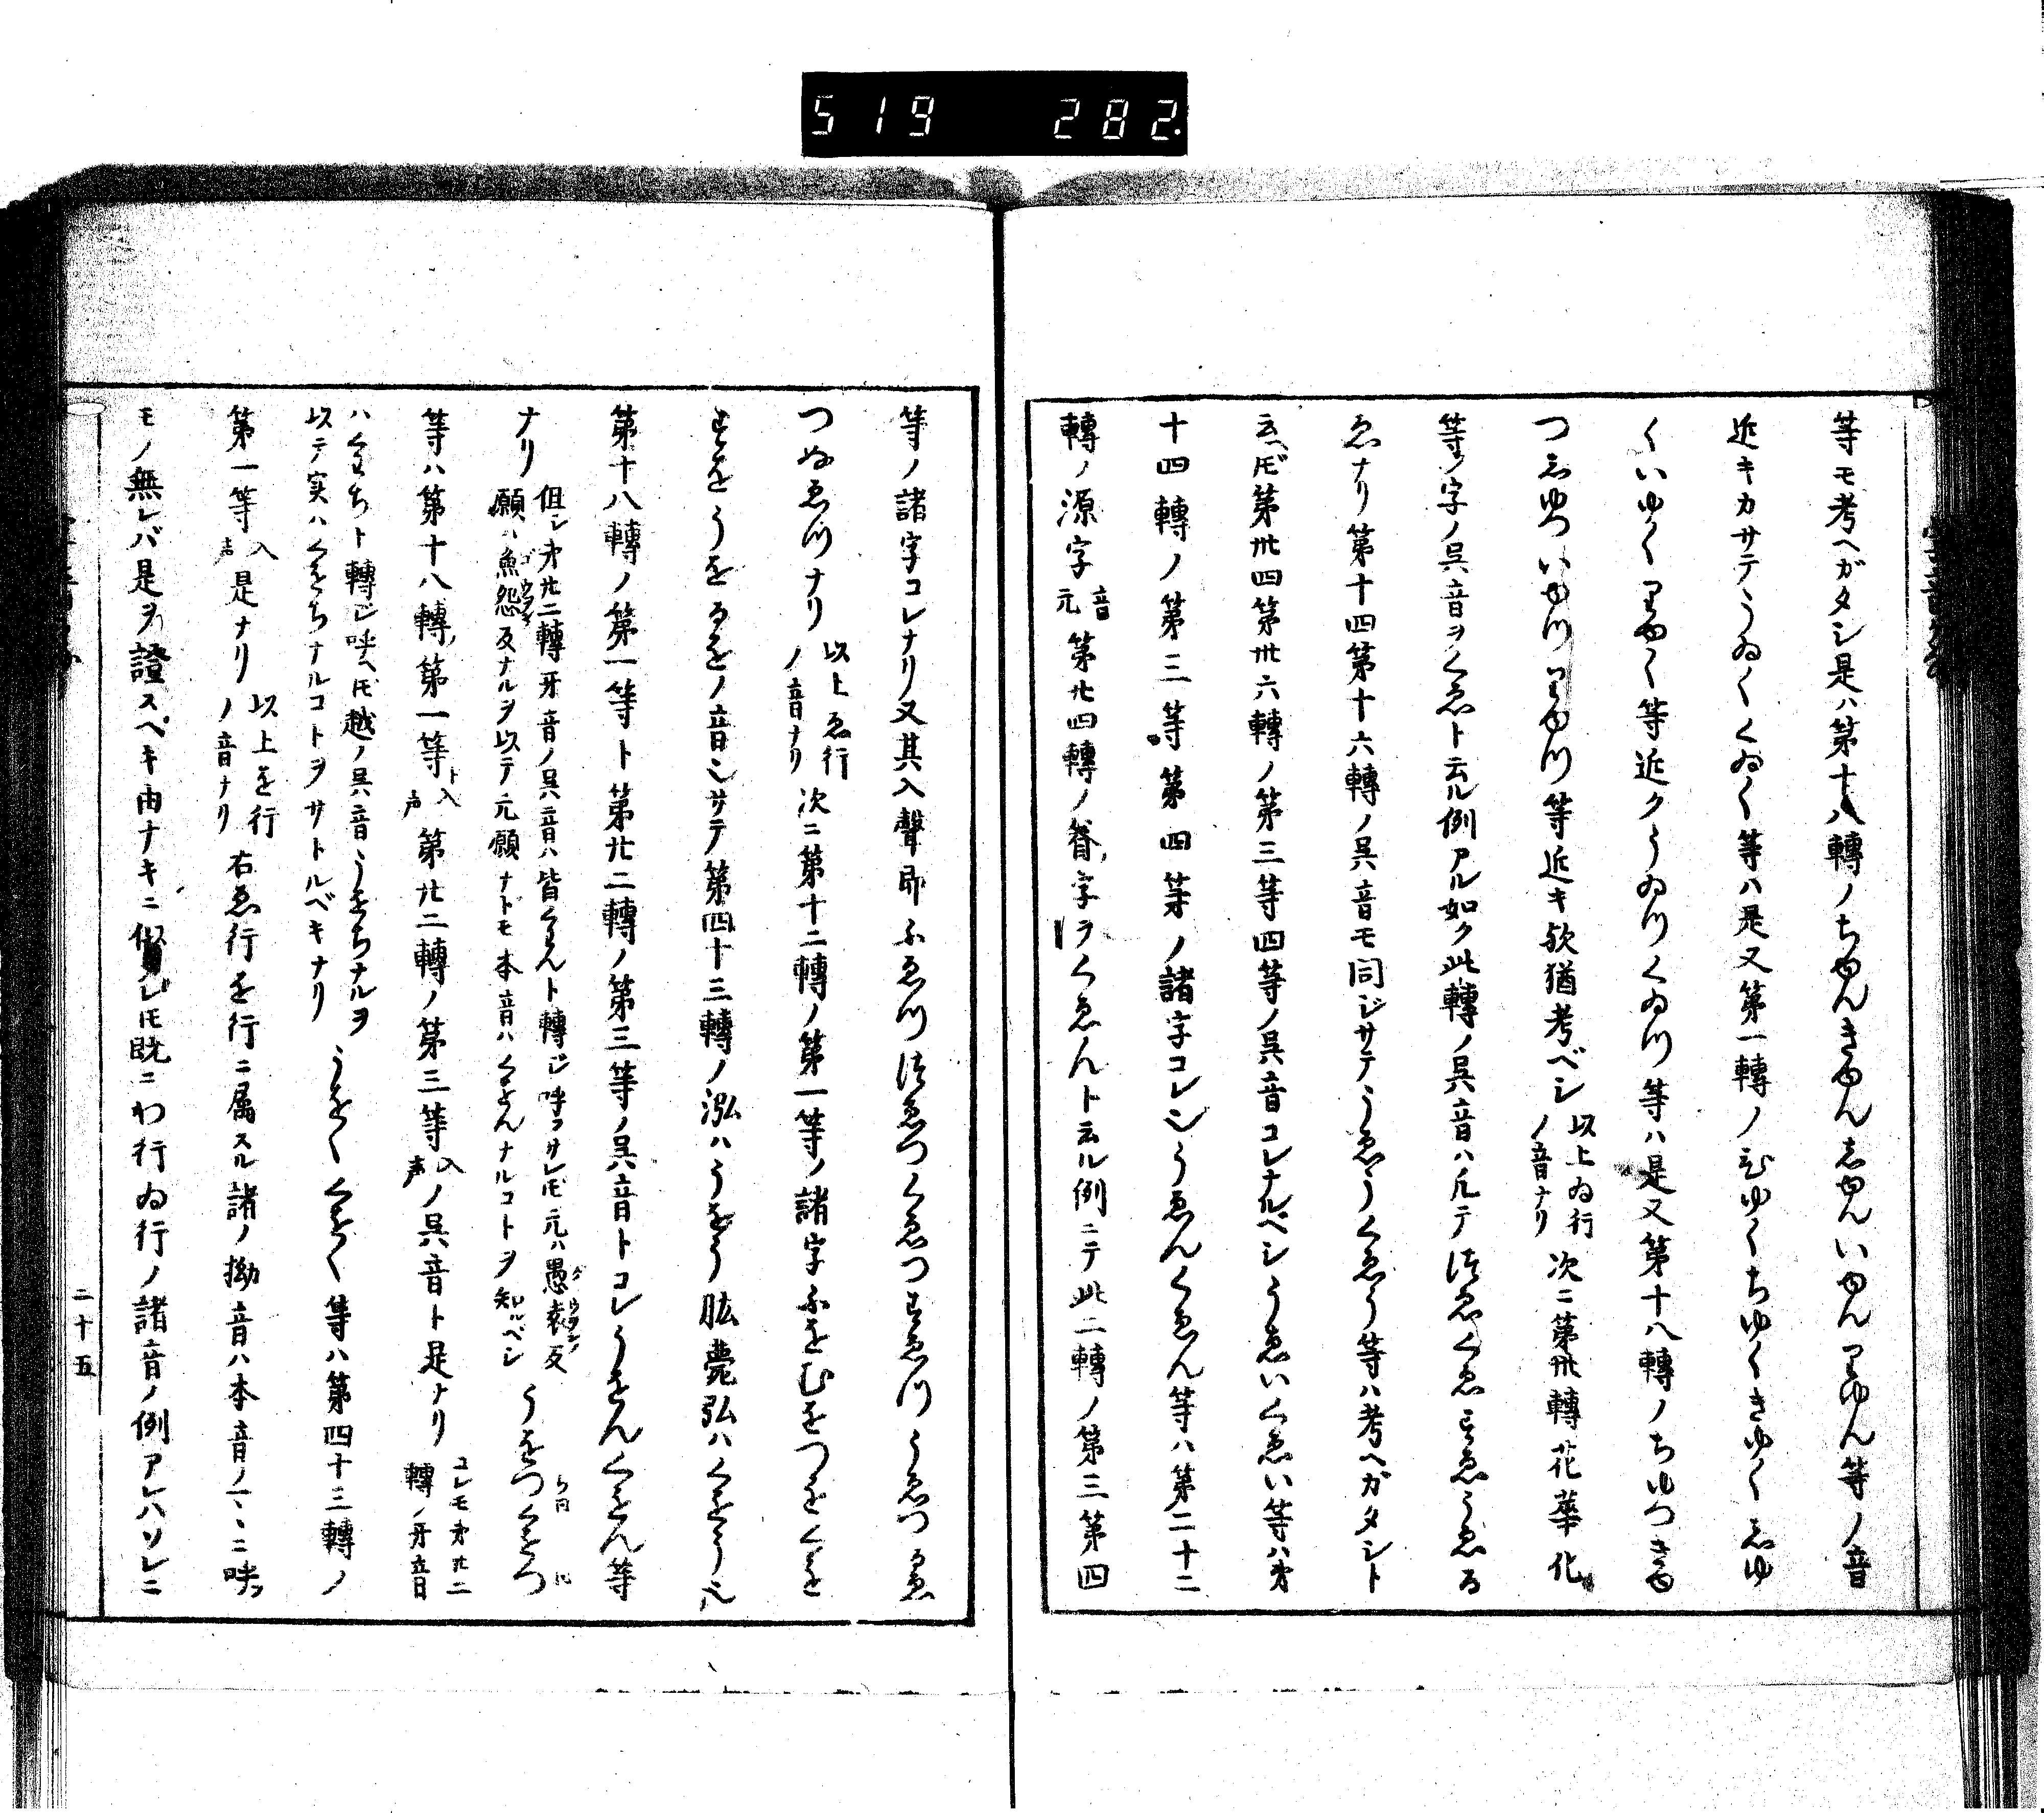 519 282.
等モ考ヘガタシ是ハ第十八轉ノちゆんきゆんしゆんいゆんりゆん等ノ音
近キカサテうゐくくゐく等ハ是又第一轉ノひゆくちゆくきゆくしゆ
くいゆくりゆく等近クうゐツくゐツ等ハ是又第十八轉ノちゆつきゆ
つしゆついゆツりゆツ等近キ欤猶考ベシ 以上ゐ行ノ音ナリ 次ニ第卅轉花華化
等ノ字ノ呉音ヲくゑト云ル例アル如ク此轉ノ呉音ハ凡テつゑくゑすゑうゑる
ゑナリ第十四第十六轉ノ呉音モ同ジサテうゑうくゑう等ハ考ヘガタシト
云ヘ𪜈第卅四第卅六轉ノ第三等四等ノ呉音コレナルベシうゑいくゑい等ハ才
十四轉ノ第三等第四等ノ諸字コレ也うゑんくゑん等ハ第二十二
轉ノ源字 音元 第廿四轉ノ眷字ヲくゑんト云ル例ニテ此二轉ノ第三第四
等ノ諸字コレナリ又其入聲即ふゑツつゑつくゑつすゑツうゑつるゑ
つぬゑツナリ 以上ゑ行ノ音ナリ 次ニ第十二轉ノ第一等ノ諸字ふをむをつをくを
すをうをるをノ音也サテ第四十三轉ノ泓ハうをう肱薨弘ハくをう也
第十八轉ノ第一等ト第廿二轉ノ第三等ノ呉音トコレうをんくをん等
ナリ 但シ才廿二轉牙音ノ呉音ハ皆くわんト轉ジ呼フサレ𪜈元ハ愚袁反
願ハ魚怨反ナルヲ以テ元願ナドモ本音ハくをんナルコトヲ知ルベシ うをつくをつ
等ハ第十八轉第一等ト入声第廿二轉ノ第三等入声ノ呉音ト是ナリ コレモ才廿二轉ノ牙音
ハくわちト轉ジ呼ヘ𪜈越ノ呉音うをちナルヲ
以テ実ハくをちナルコトヲサトルベキナリ うをくくをく等ハ第四十三轉ノ
第一等入声是ナリ 以上を行ノ音ナリ 右ゑ行を行ニ属スル諸ノ拗音ハ本音ノ一〻ニ呼フ
モノ無レバ是ヲ證スベキ由ナキニ似レ𪜈既ニわ行ゐ行ノ諸音ノ例アレハソレニ
二十五